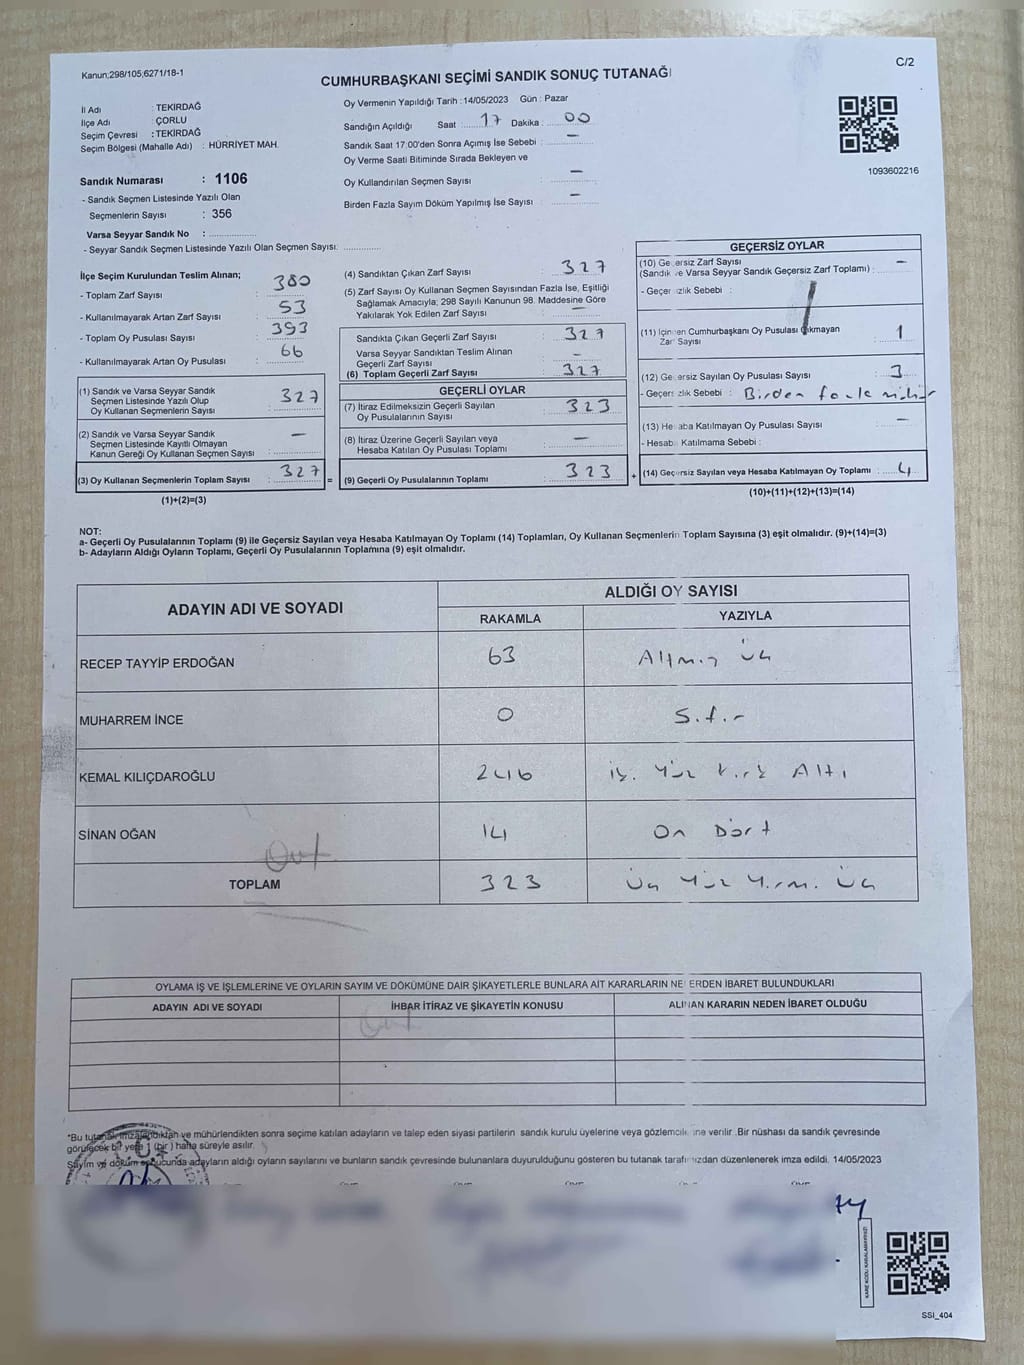 Kanun;298/105,6271/18-1
C/2
CUMHURBAŞKANI SEÇİMİ SANDIK SONUÇ TUTANAĞI
İl Adı : TEKİRDAĞ
İlçe Adı : ÇORLU
Seçim Çevresi : TEKİRDAĞ
Seçim Bölgesi (Mahalle Adı) : HÜRRİYET MAH.
Sandık Numarası : 1106
- Sandık Seçmen Listesinde Yazılı Olan
Seçmenlerin Sayısı : 356
Varsa Seyyar Sandık No :
- Seyyar Sandık Seçmen Listesinde Yazılı Olan Seçmen Sayısı:
Oy Vermenin Yapıldığı Tarih : 14/05/2023 Gün : Pazar
Sandığın Açıldığı Saat : 17 Dakika : 00
Sandık Saat 17:00'den Sonra Açımış İse Sebebi : —
Oy Verme Saati Bitiminde Sırada Bekleyen ve
Oy Kullandırılan Seçmen Sayısı : —
Birden Fazla Sayım Döküm Yapılmış İse Sayısı : —
1093602216
İlçe Seçim Kurulundan Teslim Alınan;
- Toplam Zarf Sayısı : 380
- Kullanılmayarak Artan Zarf Sayısı : 53
- Toplam Oy Pusulası Sayısı : 393
- Kullanılmayarak Artan Oy Pusulası : 66
(1) Sandık ve Varsa Seyyar Sandık
Seçmen Listesinde Yazılı Olup
Oy Kullanan Seçmenlerin Sayısı : 327
(2) Sandık ve Varsa Seyyar Sandık
Seçmen Listesinde Kayıtlı Olmayan
Kanun Gereği Oy Kullanan Seçmen Sayısı : —
(3) Oy Kullanan Seçmenlerin Toplam Sayısı : 327
(1)+(2)=(3)
(4) Sandıktan Çıkan Zarf Sayısı : 327
(5) Zarf Sayısı Oy Kullanan Seçmen Sayısından Fazla İse, Eşitliği
Sağlamak Amacıyla; 298 Sayılı Kanunun 98. Maddesine Göre
Yakılarak Yok Edilen Zarf Sayısı : —
Sandıkta Çıkan Geçerli Zarf Sayısı : 327
Varsa Seyyar Sandıktan Teslim Alınan
Geçerli Zarf Sayısı : —
(6) Toplam Geçerli Zarf Sayısı : 327
GEÇERLİ OYLAR
(7) İtiraz Edilmeksizin Geçerli Sayılan
Oy Pusulalarının Sayısı : 323
(8) İtiraz Üzerine Geçerli Sayılan veya
Hesaba Katılan Oy Pusulası Toplamı : —
= (9) Geçerli Oy Pusulalarının Toplamı : 323 +
GEÇERSİZ OYLAR
(10) Geçersiz Zarf Sayısı
(Sandık ve Varsa Seyyar Sandık Geçersiz Zarf Toplamı) : —
- Geçersizlik Sebebi :
(11) İçinden Cumhurbaşkanı Oy Pusulası Çıkmayan
Zarf Sayısı : 1
(12) Geçersiz Sayılan Oy Pusulası Sayısı : 3
- Geçersizlik Sebebi : Birden fazla mühür
(13) Hesaba Katılmayan Oy Pusulası Sayısı : —
- Hesaba Katılmama Sebebi :
(14) Geçersiz Sayılan veya Hesaba Katılmayan Oy Toplamı : 4
(10)+(11)+(12)+(13)=(14)
NOT:
a- Geçerli Oy Pusulalarının Toplamı (9) ile Geçersiz Sayılan veya Hesaba Katılmayan Oy Toplamı (14) Toplamları, Oy Kullanan Seçmenlerin Toplam Sayısına (3) eşit olmalıdır. (9)+(14)=(3)
b- Adayların Aldığı Oyların Toplamı, Geçerli Oy Pusulalarının Toplamına (9) eşit olmalıdır.
ADAYIN ADI VE SOYADI ALDIĞI OY SAYISI
RAKAMLA YAZIYLA
RECEP TAYYİP ERDOĞAN 63 Altmış üç
MUHARREM İNCE 0 Sıfır
KEMAL KILIÇDAROĞLU 246 iki Yüz kırk Altı
SİNAN OĞAN 14 On Dört
TOPLAM 323 Üç Yüz Yirmi Üç
OYLAMA İŞ VE İŞLEMLERİNE VE OYLARIN SAYIM VE DÖKÜMÜNE DAİR ŞİKAYETLERLE BUNLARA AİT KARARLARIN NELERDEN İBARET BULUNDUKLARI
ADAYIN ADI VE SOYADI İHBAR İTİRAZ VE ŞİKAYETİN KONUSU ALINAN KARARIN NEDEN İBARET OLDUĞU
*Bu tutanak imzalandıktan ve mühürlendikten sonra seçime katılan adayların ve talep eden siyasi partilerin sandık kurulu üyelerine veya gözlemcilerine verilir .Bir nüshası da sandık çevresinde
görülecek bir yere 1 (bir ) hafta süreyle asılır.
Sayım ve döküm sonucunda adayların aldığı oyların sayılarını ve bunların sandık çevresinde bulunanlara duyurulduğunu gösteren bu tutanak tarafımızdan düzenlenerek imza edildi. 14/05/2023
SSI_404